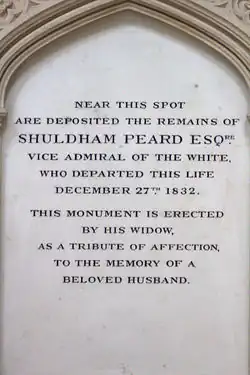 NEAR THIS SPOT
ARE DEPOSITED THE REMAINS OF
SHULDHAM PEARD ESQRE.
VICE ADMIRAL OF THE WHITE,
WHO DEPARTED THIS LIFE
DECEMBER 27TH 1832.
THIS MONUMENT IS ERECTED
BY HIS WIDOW,
AS A TRIBUTE OF AFFECTION,
TO THE MEMORY OF A
BELOVED HUSBAND.